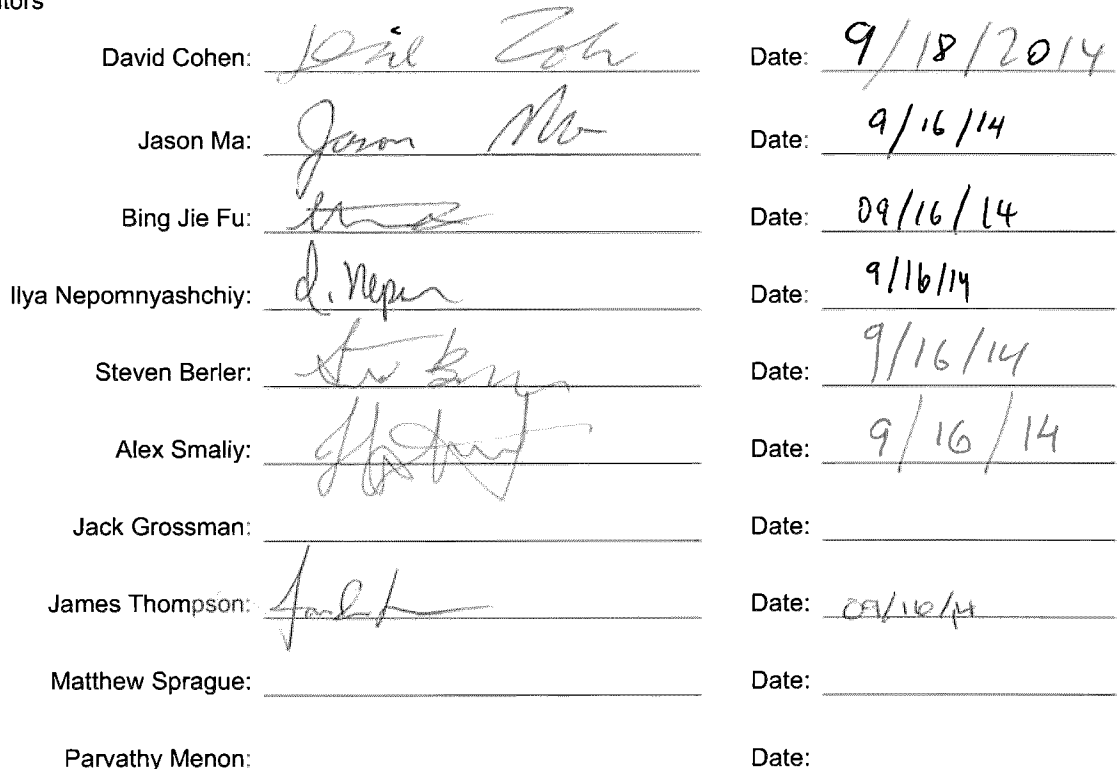 tors
David Cohen: Date: 9/18/2014
Jason Ma: Jason Ma Date: 9/16/14
Bing Jie Fu: Date: 09/16/14
Ilya Nepomnyashchiy: Date: 9/16/14
Steven Berler: Date: 9/16/14
Alex Smaliy: Date: 9/16/14
Jack Grossman: Date:
James Thompson: Date: 09/16/14
Matthew Sprague: Date:
Parvathy Menon: Date: